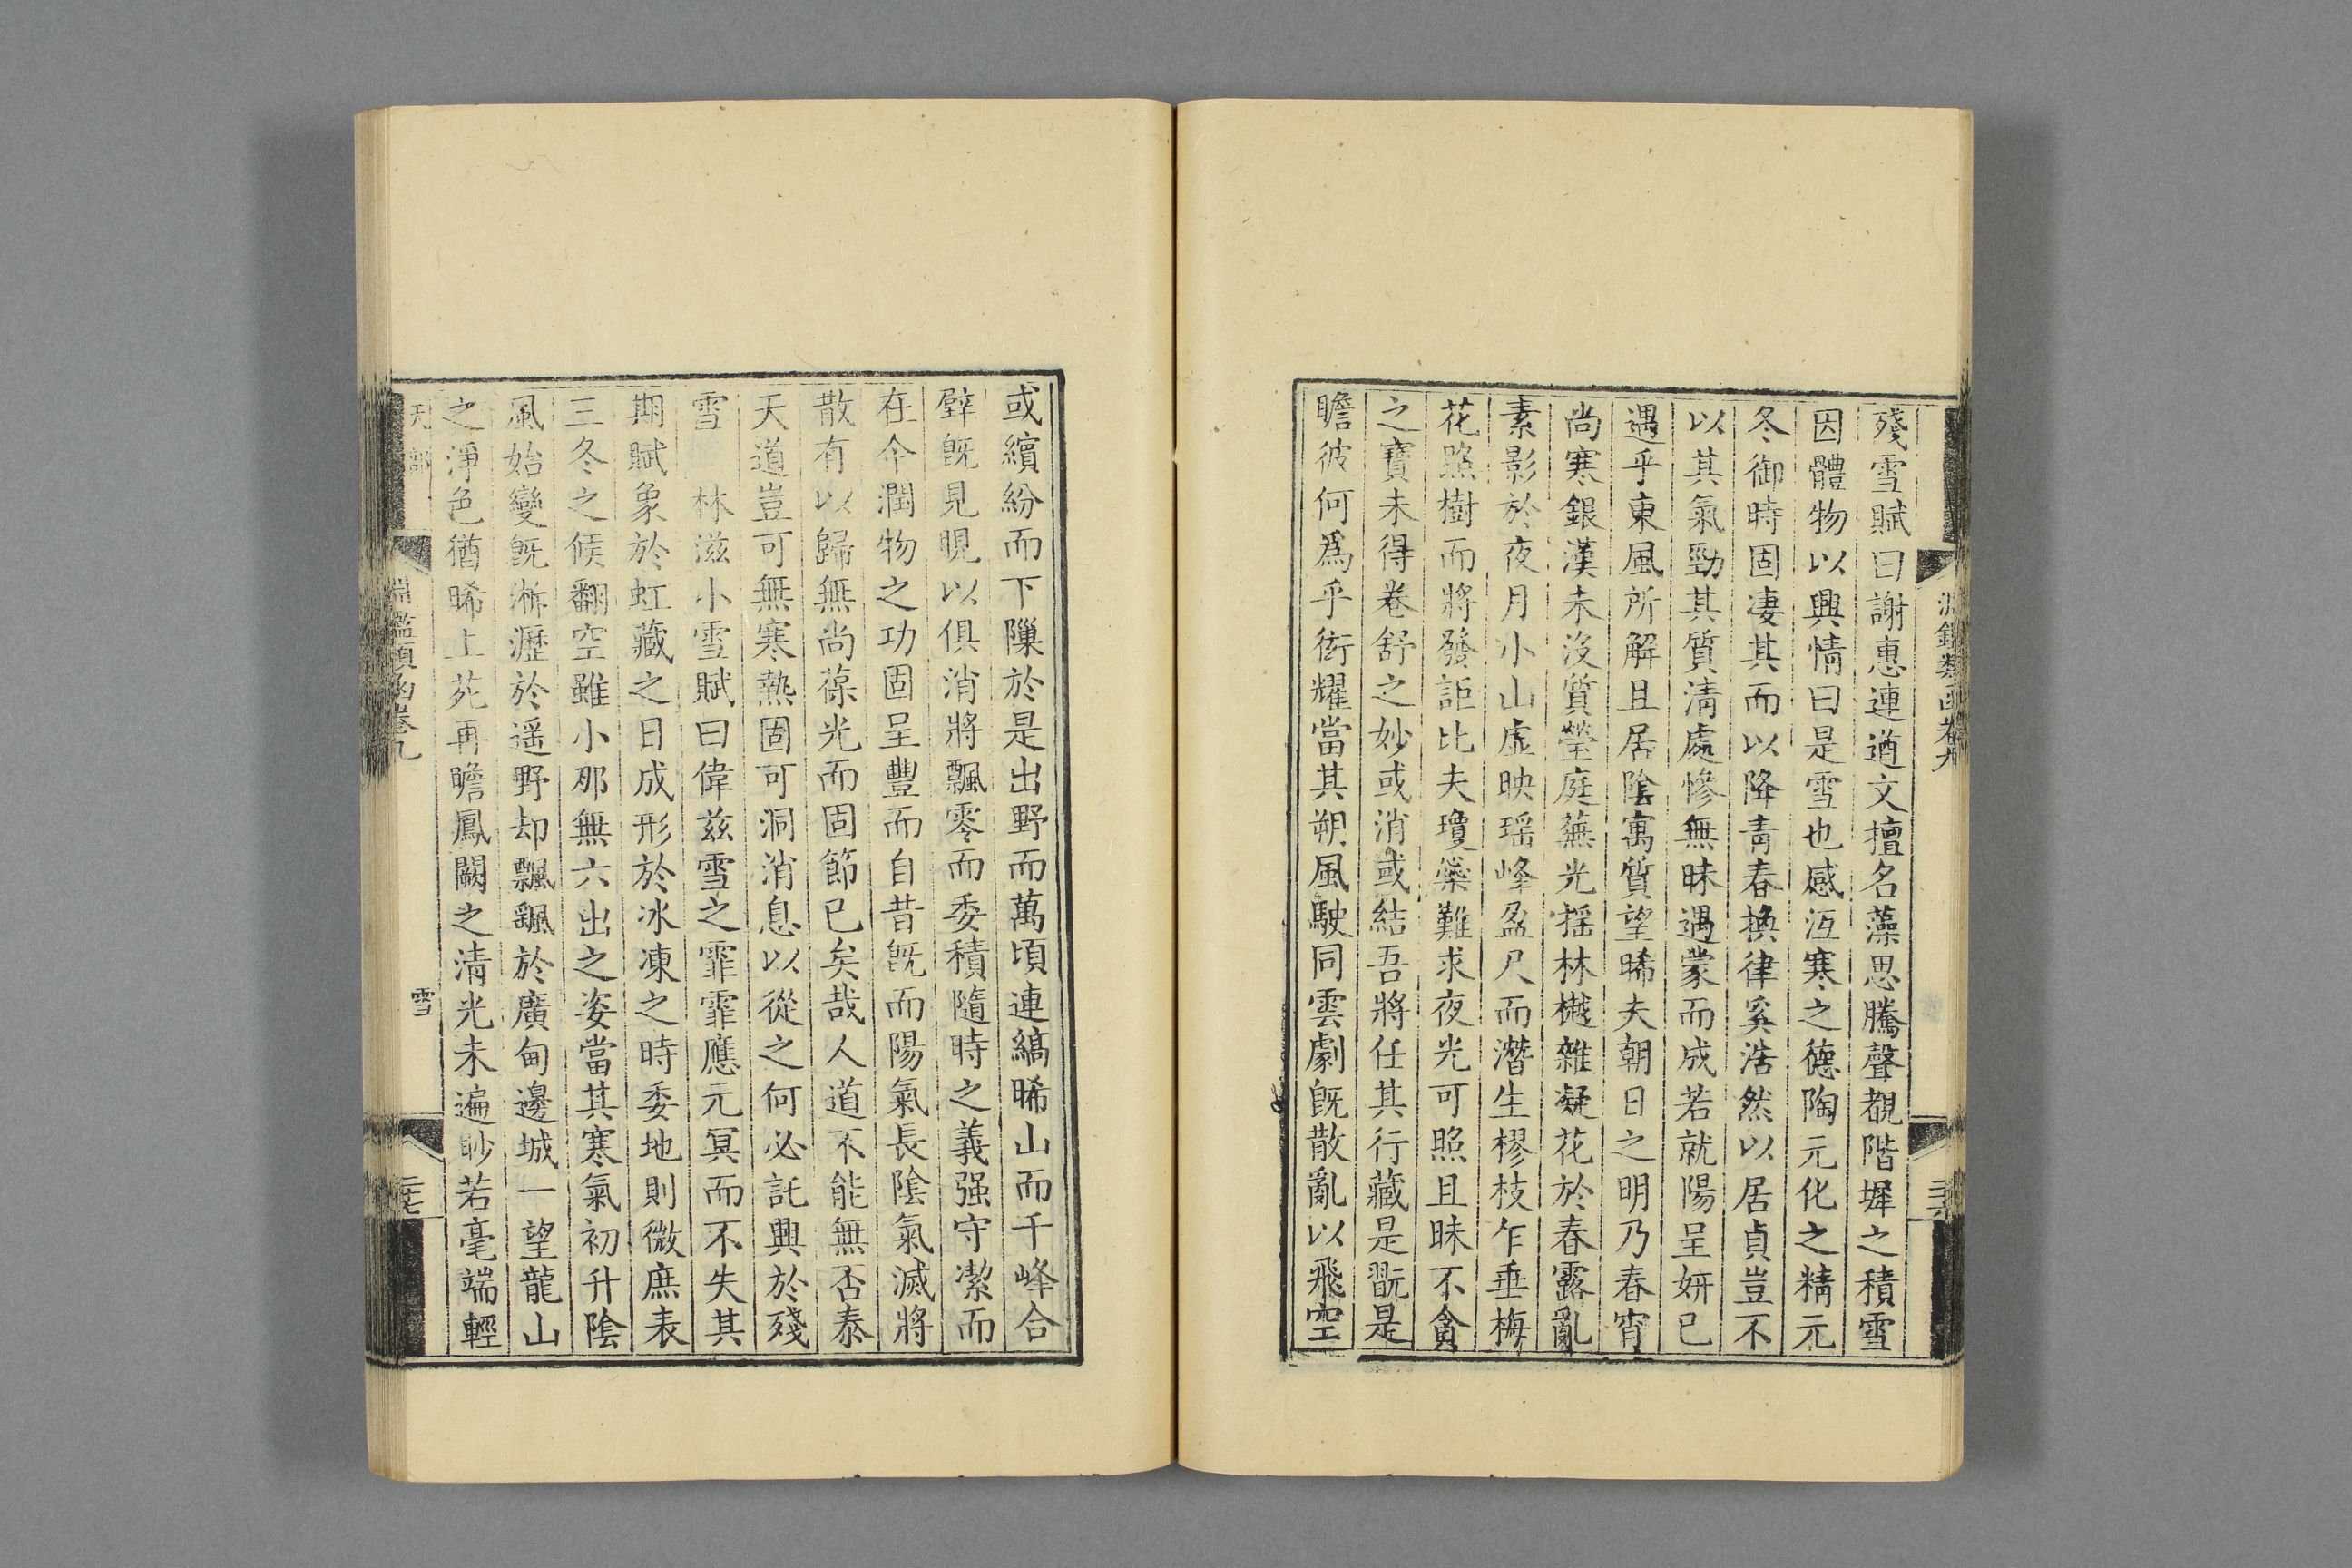 淵鑑類函卷九
殘雪賦曰謝惠連遒文擅名藻思騰聲覩階墀之積雪
因體物以興情曰是雪也感沍寒之德陶元化之精元
冬御時固凄其而以降青春換律奚浩然以居貞豈不
以其氣勁其質清處慘無昧遇蒙而成若就陽呈姸已
遇乎東風所解且居陰寓質望晞夫朝日之明乃春宵
尚寒銀漢未沒質瑩庭蕪光揺林樾雜凝花於春露亂
素影於夜月小山虛映瑶峰盈尺而潛生樛枝乍垂梅
花照樹而將發詎比夫瓊藥難求夜光可照且昧不貪
之寶未得卷舒之妙或消或結吾將任其行藏是翫是
瞻彼何爲乎衒耀當其朔風駛同雲劇旣散亂以飛空
或繽紛而下隟於是出野而萬頃連縞晞山而千峰合
璧旣見晛以俱消將飄零而委積隨時之義强守潔而
在今潤物之功固呈豐而自昔旣而陽氣長陰氣滅將
散有以歸無尚葆光而固節已矣哉人道不能無否泰
天道豈可無寒熱固可洞消息以從之何必託興於殘
雪　林滋小雪賦曰偉兹雪之霏霏應元冥而不失其
期賦象於虹藏之日成形於冰凍之時委地則微庶表
三冬之候翻空雖小那無六出之姿當其寒氣初升陰
風始變旣淅瀝於遥野却飄颻於廣甸邊城一望龍山
之淨色猶晞上苑再瞻鳳闕之清光未遍眇若毫端輕
天部
淵鑑類函卷九
雪
二十七